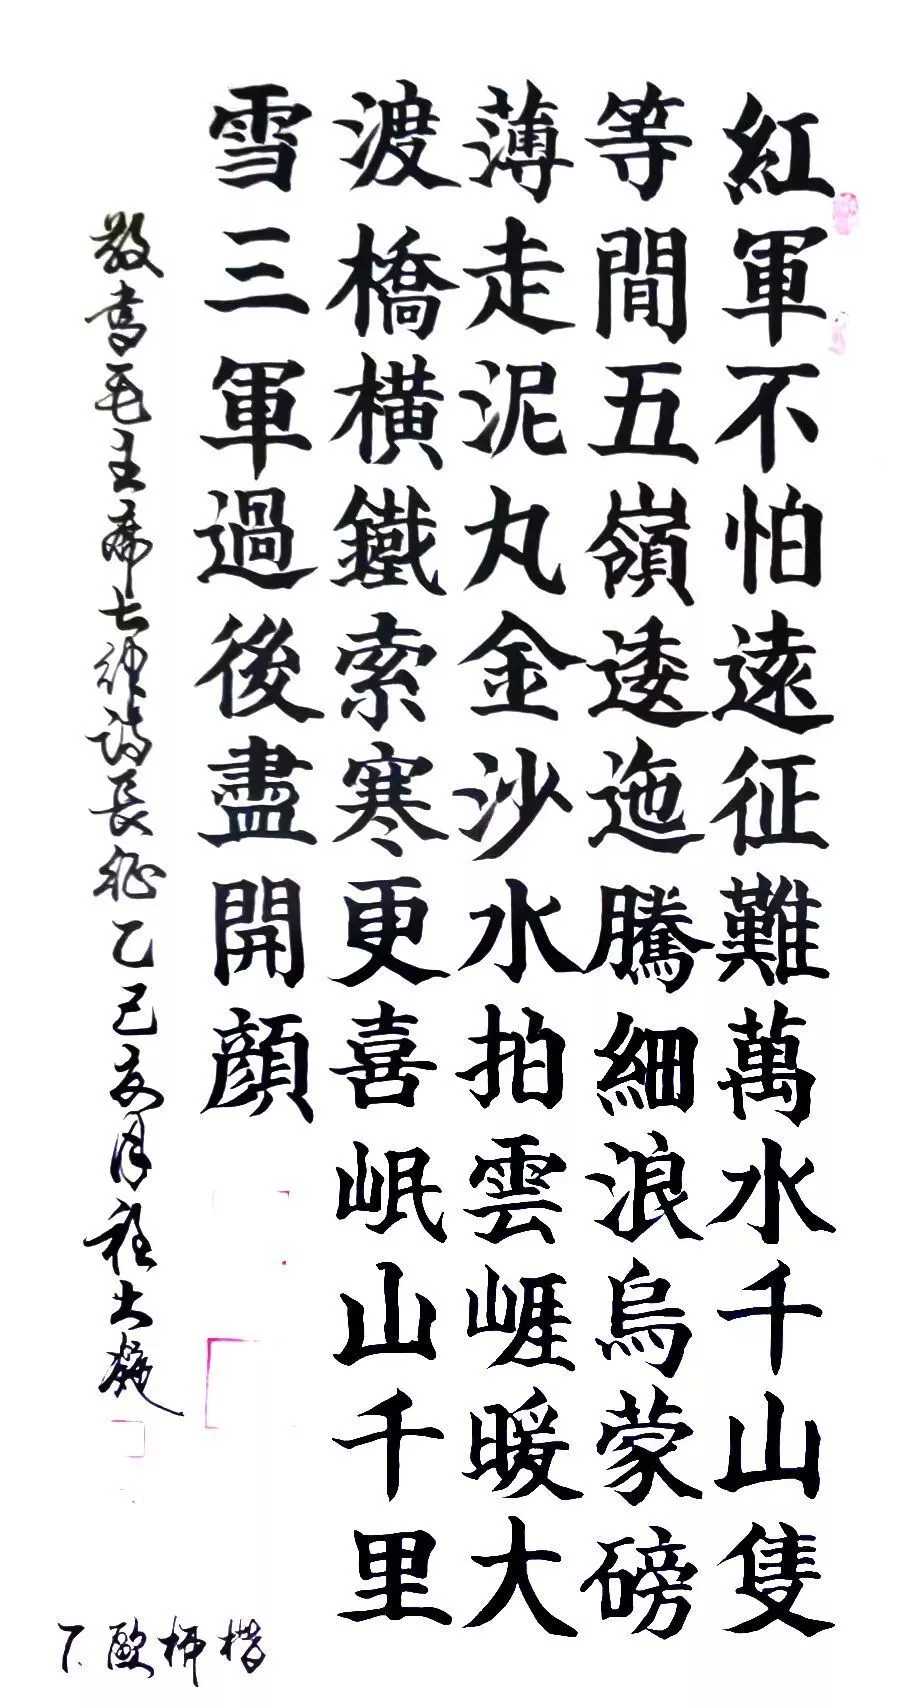 紅軍不怕遠征難萬水千山隻
等間五嶺逶迤騰細浪烏蒙磅
薄走泥丸金沙水拍雲崕暖大
渡橋橫鐵索寒更喜岷山千里
雪三軍過後盡開顔
敬書毛主席七律詩長征乙巳夏月程大
7.歐柳楷